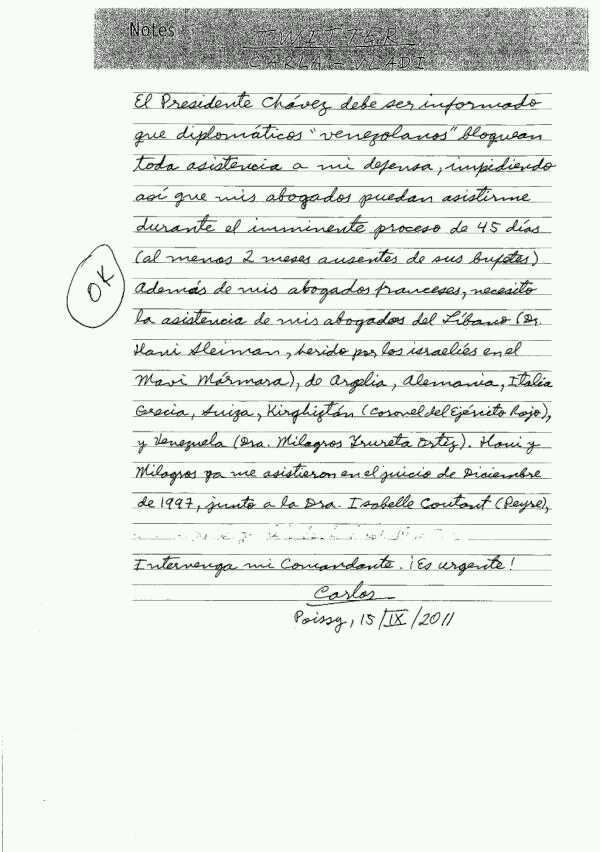 Notes
TWITTER
El Presidente Chávez debe ser informado
que diplomáticos "venezolanos" bloquean
toda asistencia a mi defensa, impidiendo
así que mis abogados puedan asistirme
durante el imminente proceso de 45 días
(al menos 2 meses ausentes de sus bufetes)
OK
Además de mis abogados franceses, necesito
la asistencia de mis abogados del Líbano (Dr.
Hani Sleiman, herido por los israelíes en el
Mavi Mármara), de Argelia, Alemania, Italia
Grecia, Suiza, Kirghiztán (Coronel del Ejército Rojo),
y Venezuela (Dra. Milagros Irureta Ortiz). Hani y
Milagros ya me asistieron en el juicio de Diciembre
de 1997, junto a la Dra. Isabelle Coutant (Peyre),
Intervenga mi Comandante. ¡Es urgente!
Carlos
Poissy, 15/IX/2011